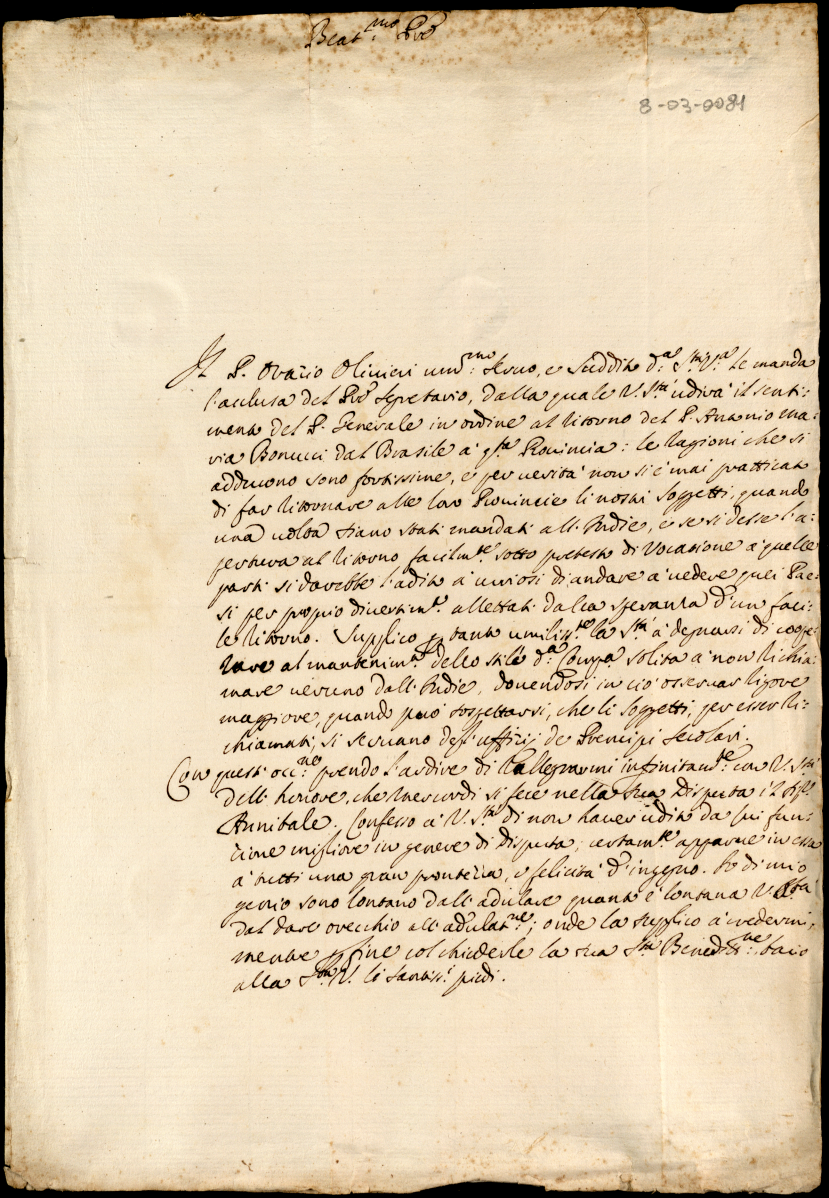 Beat.mo Pre
8-03-0081
Il P. Orazio Olivieri um.mo servo, e suddito d.a S.tà V.a Le manda
l'acclusa del Pre Segretario, dalla quale V. S.tà udirà il senti:
mento del P. Generale in ordine al ritorno del P. Antonio Ma:
ria Bonucci dal Brasile à q.sta Provincia: le ragioni che si
adducono sono fortissime, e per verità non si è mai pratticato
di far ritornare alle loro Provincie li nostri Soggetti, quando
una volta siano stati mandati all'Indie, e se si desse l'a:
pertura al ritorno facilm.te sotto pretesto di Vocazione à quelle
parti si darebbe l'adito à curiosi di andare à vedere quei Pae:
si per proprio divertim.to allettati dalla speranza d'un faci:
le ritorno. Supplico p tanto umiliss.te la S.tà à degnarsi di coope:
rare al mantenim.to dello stile d.a Comp.a solita à non richia:
mare veruno dall'Indie, dovendosi in ciò osservar rigore
maggiore, quando può sospettarsi, che li Soggetti, per esser ri:
chiamati, si servano degl'uffizij de Prencipi Secolari.
Con quest'occ.ne prendo l'ardire di rallegrarmi infinitam.te con V. S.tà
dell'honore, che mercordi si fece nella sua Disputa il
Annibale. Confesso à V. S.tà di non haver udito da più fun:
zione migliore in genere di disputa; certam.te apparve in essa
à tutti una gran prontezza, e felicità d'ingegno. Io di mio
genio sono lontano dall'adulare quanto è lontana V. S.tà
dal dare orecchio all'adulat.ne; onde la supplico à credermi,
mentre p fine col chiederle la sua S.ta Bened.ne bacio
alla S.tà V. li santiss.i piedi.